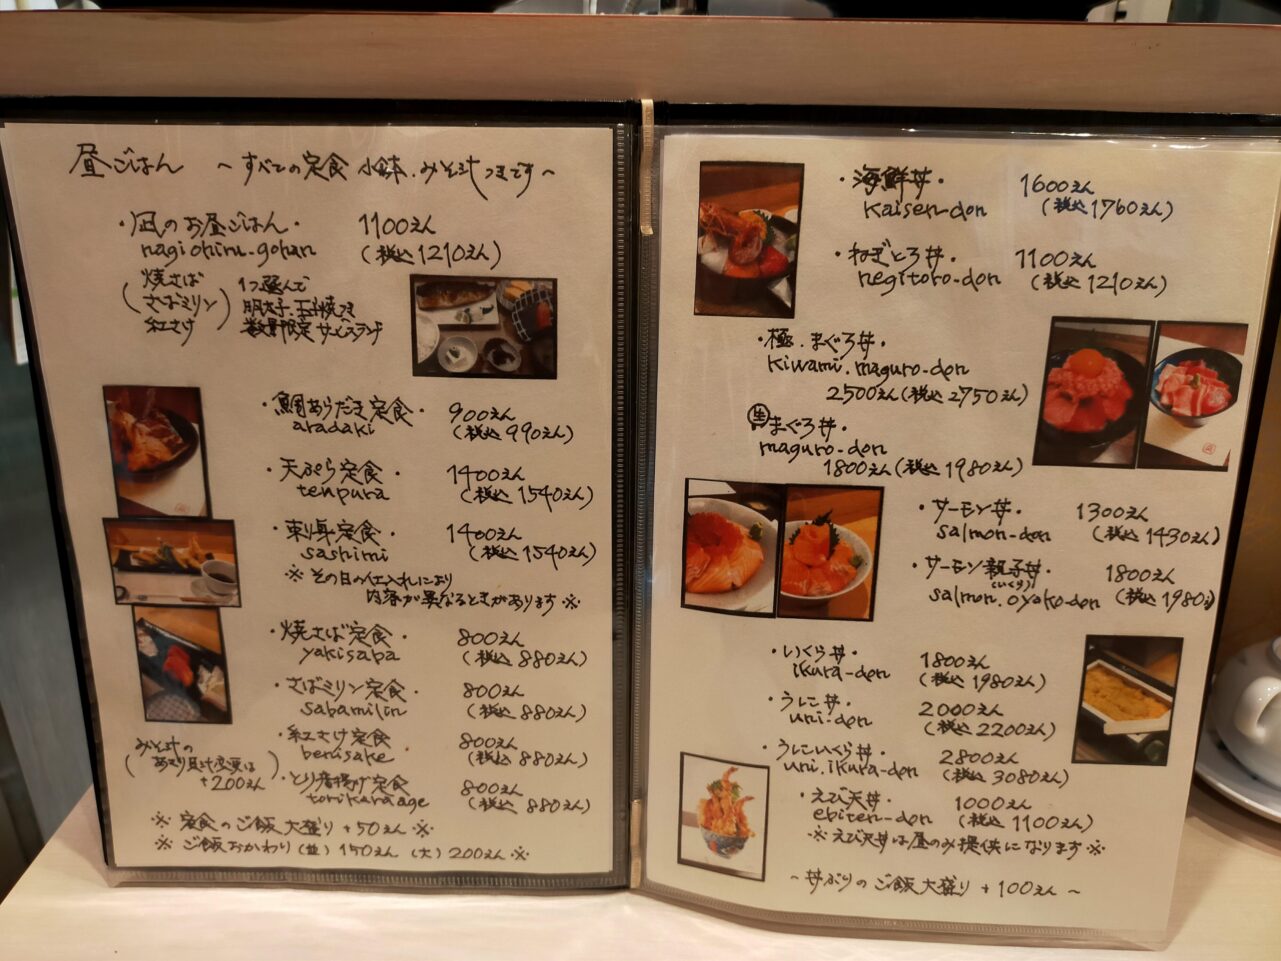 昼ごはん ～すべての定食 小鉢.みそ汁つきです～
・凪のお昼ごはん・ 1100えん
nagi ohiru-gohan (税込1210えん)
焼さば
さばミリン
紅さけ
1つ選んで
明太子.玉子焼つき
数量限定サービスランチ
・鯛あらだき定食・ 900えん
aradaki (税込990えん)
・天ぷら定食・ 1400えん
tenpura (税込1540えん)
・刺身定食・ 1400えん
sashimi (税込1540えん)
※その日の仕入れにより
内容が異なるときがあります※
・焼さば定食・ 800えん
yakisaba (税込880えん)
・さばミリン定食・ 800えん
sabamilin (税込880えん)
・紅さけ定食・ 800えん
benisake (税込880えん)
・とり唐揚げ定食・ 800えん
torikaraage (税込880えん)
(みそ汁の
あさり貝汁変更は
+200えん)
※定食のご飯大盛り+50えん※
※ご飯おかわり(並)150えん (大)200えん※
・海鮮丼・ 1600えん
kaisen-don (税込1760えん)
・ねぎとろ丼・ 1100えん
negitoro-don (税込1210えん)
・極.まぐろ丼・
kiwami.maguro-don
2500えん(税込2750えん)
生まぐろ丼・
maguro-don
1800えん(税込1980えん)
・サーモン丼・ 1300えん
salmon-don (税込1430えん)
・サーモン親子丼・ 1800えん
(いくら)
salmon.oyako-don (税込1980えん)
・いくら丼・ 1800えん
ikura-don (税込1980えん)
・うに丼・ 2000えん
uni-don (税込2200えん)
・うにいくら丼・ 2800えん
uni.ikura-don (税込3080えん)
・えび天丼・ 1000えん
ebiten-don (税込1100えん)
※えび天丼は昼のみ提供になります※
～丼ぶりのご飯大盛り+100えん～